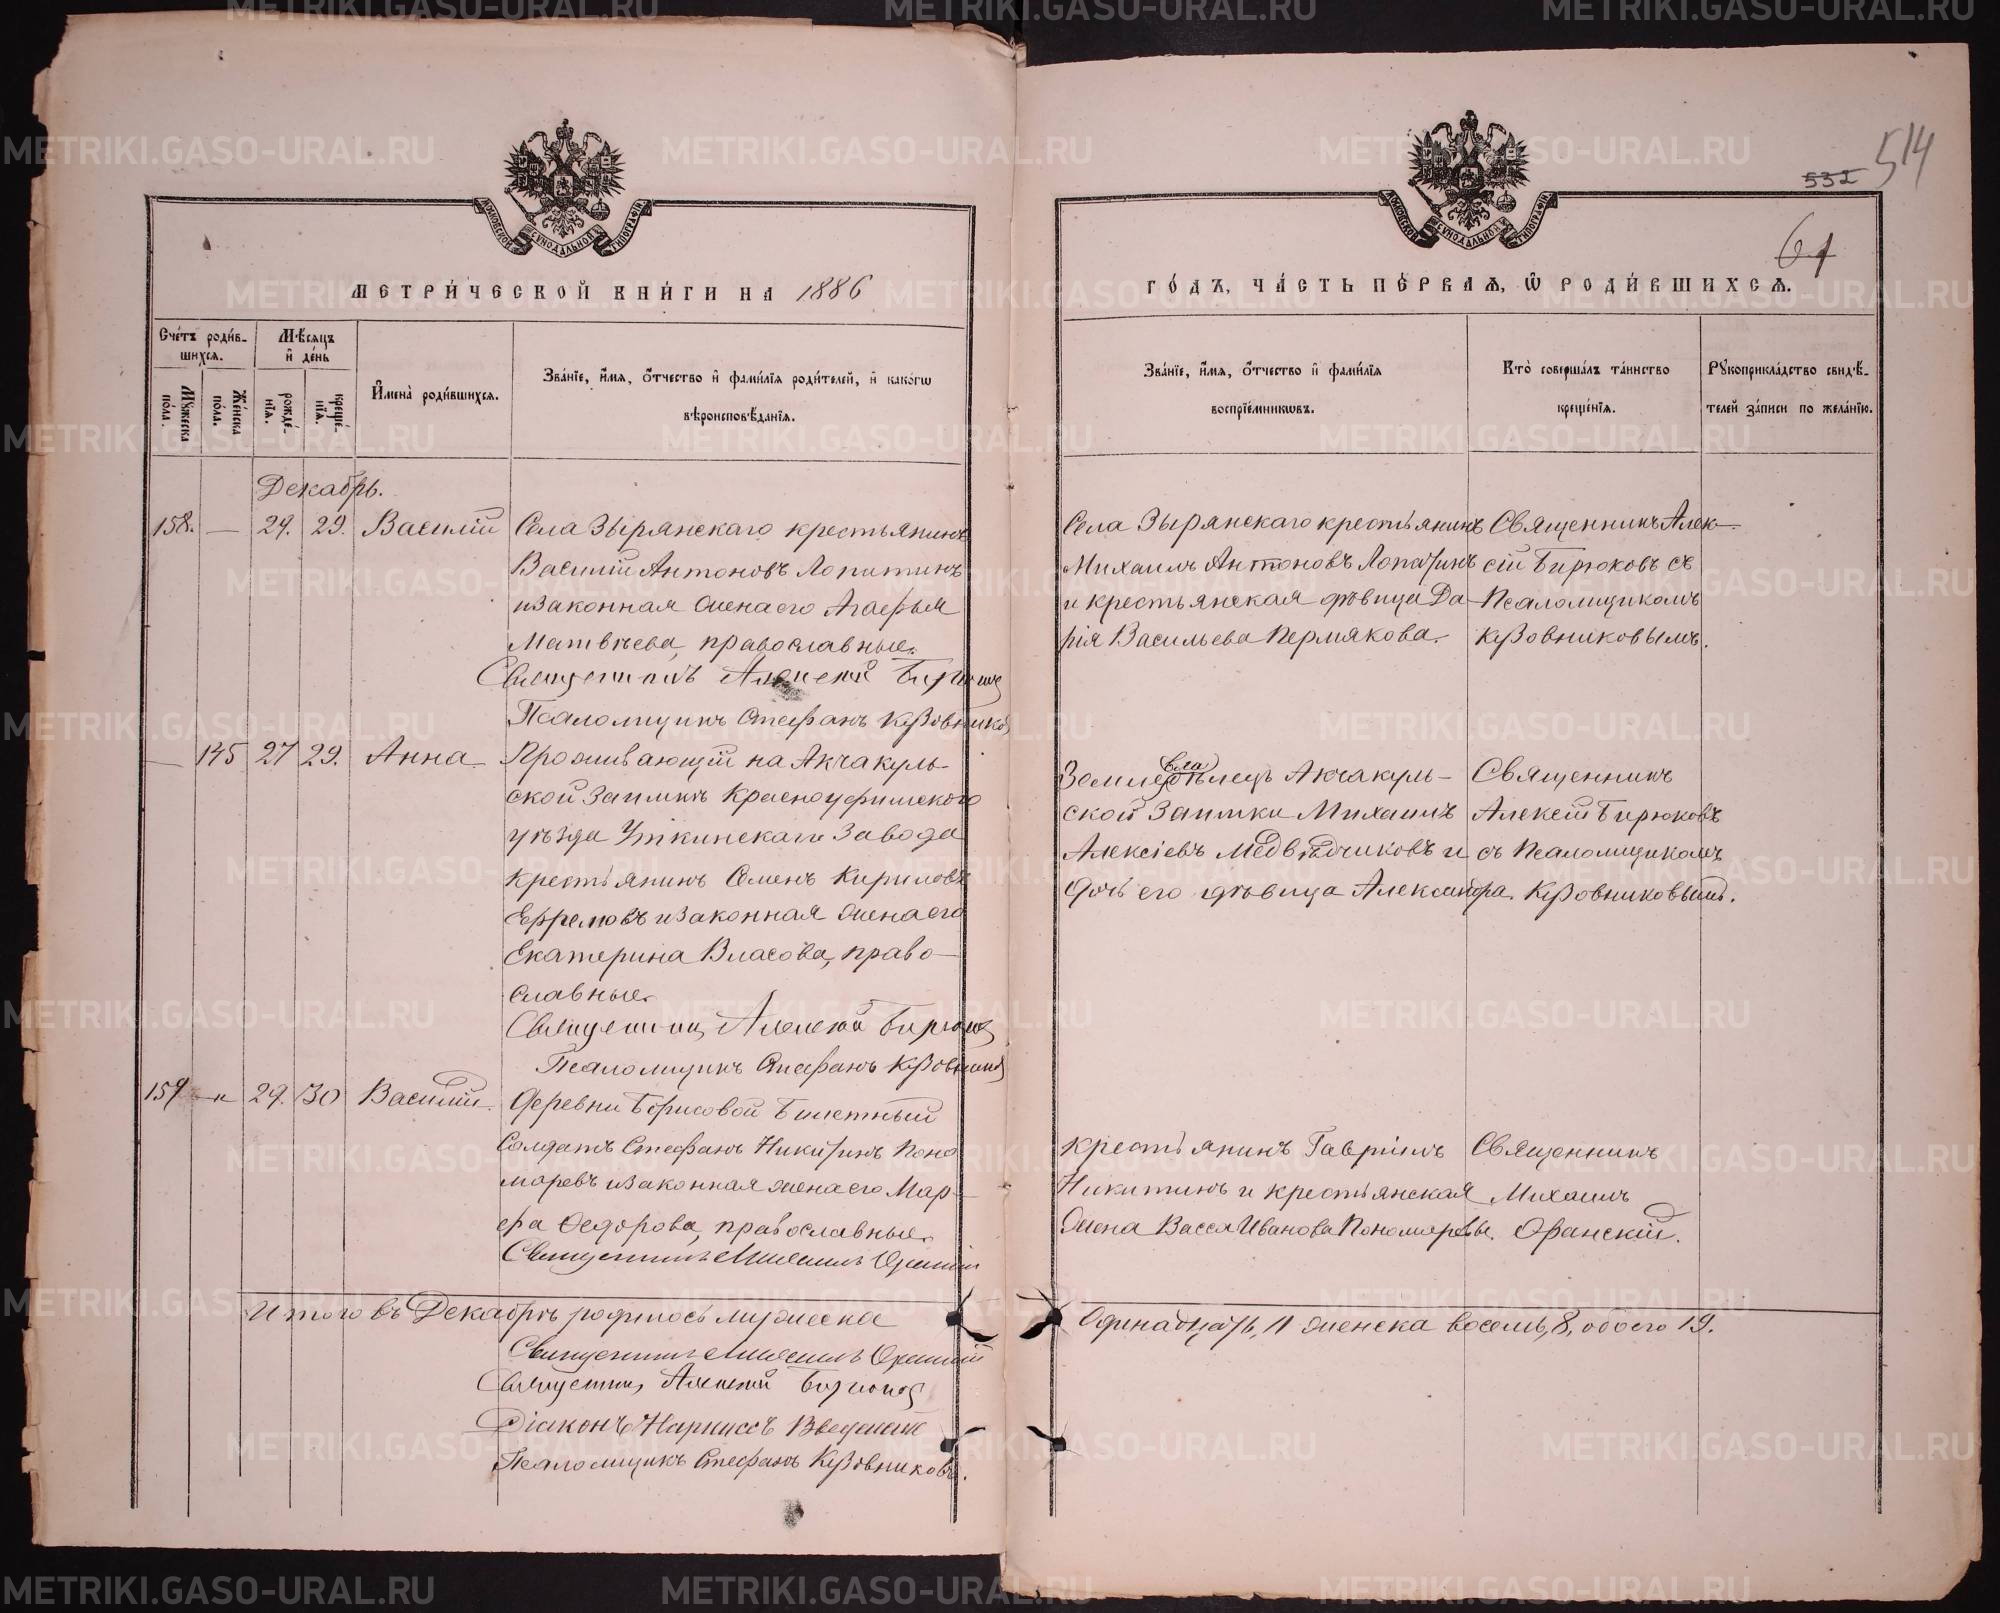 532 514
61
МОСКОВСКОЙ СѴНОДАЛЬНОЙ ТИПОГРАФІИ
МОСКОВСКОЙ СѴНОДАЛЬНОЙ ТИПОГРАФІИ
МЕТРИ́ЧЕСКОЙ КНИ́ГИ НА 1886
ГО́ДЪ, ЧА́СТЬ ПЕ́РВАѦ, Ѡ РОДИ́ВШИХСѦ.
Сче́тъ роди́в-
шихсѧ.
Мꙋжеска по́ла.
Же́нска по́ла.
Мѣ́сѧцъ
и҆ де́нь
рожде́нїѧ.
креще́нїѧ.
И҆мена̀ роди́вшихсѧ.
Зва́нїе, и҆́мѧ, ѻ҆́тчество и҆ фами́лїѧ роди́телей, и҆ како́гѡ
вѣроисповѣ́данїѧ.
Зва́нїе, и҆́мѧ, ѻ҆́тчество и҆ фами́лїѧ
воспрїе́мникѡвъ.
Кто̀ соверша́лъ та́инство
креще́нїѧ.
Рꙋкоприкла́дство свидѣ́-
телей за́писи по жела́нїю.
Декабрь.
158. — 24. 29. Василій
Села Зырянскаго крестьянинъ
Василій Антоновъ Лопатинъ
и законная жена его Агафья
Матвѣева, православные.
Священникъ Алексій Бирюковъ
Псаломщикъ Стефанъ Кузовников
Села Зырянскаго крестьянинъ
Михаилъ Антоновъ Лопатинъ
и крестьянская дѣвица Да-
рія Васильева Пермякова.
Священникъ Алек-
сій Бирюковъ съ
Псаломщикомъ
Кузовниковымъ.
— 145 27 29. Анна
Проживающій на Акчакуль-
ской Заимкѣ Красноуфимскаго
уѣзда Уткинскаго Завода
крестьянинъ Семенъ Кириловъ
Ефремовъ и законная жена его
Екатерина Власова, право-
славные.
Священникъ Алексій Бирюковъ
Псаломщикъ Стефанъ Кузовников
Землевладѣлецъ Акчакуль-
ской Заимки Михаилъ
Алексіевъ Медвѣдчиковъ и
дочь его дѣвица Александра.
Священникъ
Алексій Бирюковъ
съ Псаломщикомъ
Кузовниковымъ.
159 — 29. 30 Василій.
Деревни Борисовой Билетный
Солдатъ Стефанъ Никитинъ Поно
моревъ и законная жена его Мар-
ѳа Ѳедорова, православные.
Священникъ Михаилъ Оранскій
крестьянинъ Гавріилъ
Никитинъ и крестьянская
жена Васса Иванова Пономаревы.
Священникъ
Михаилъ
Оранскій.
Итого въ Декабрѣ родилось мужеска
Одинадцать, 11 женска восемь, 8, обоего 19.
Священникъ Михаилъ Оранскій
Священникъ Алексій Бирюковъ
Діаконъ Наркиссъ Введенскій
Псаломщикъ Стефанъ Кузовниковъ.